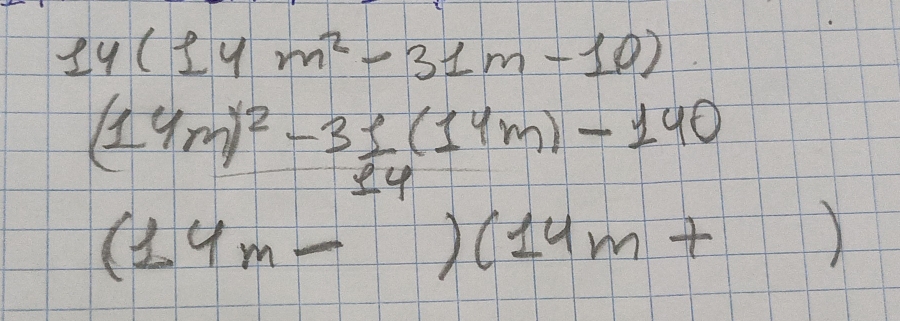 14(14m²-31m-10)
(14m)²-31(14m)-140
14
(14m-    )(14m+    )